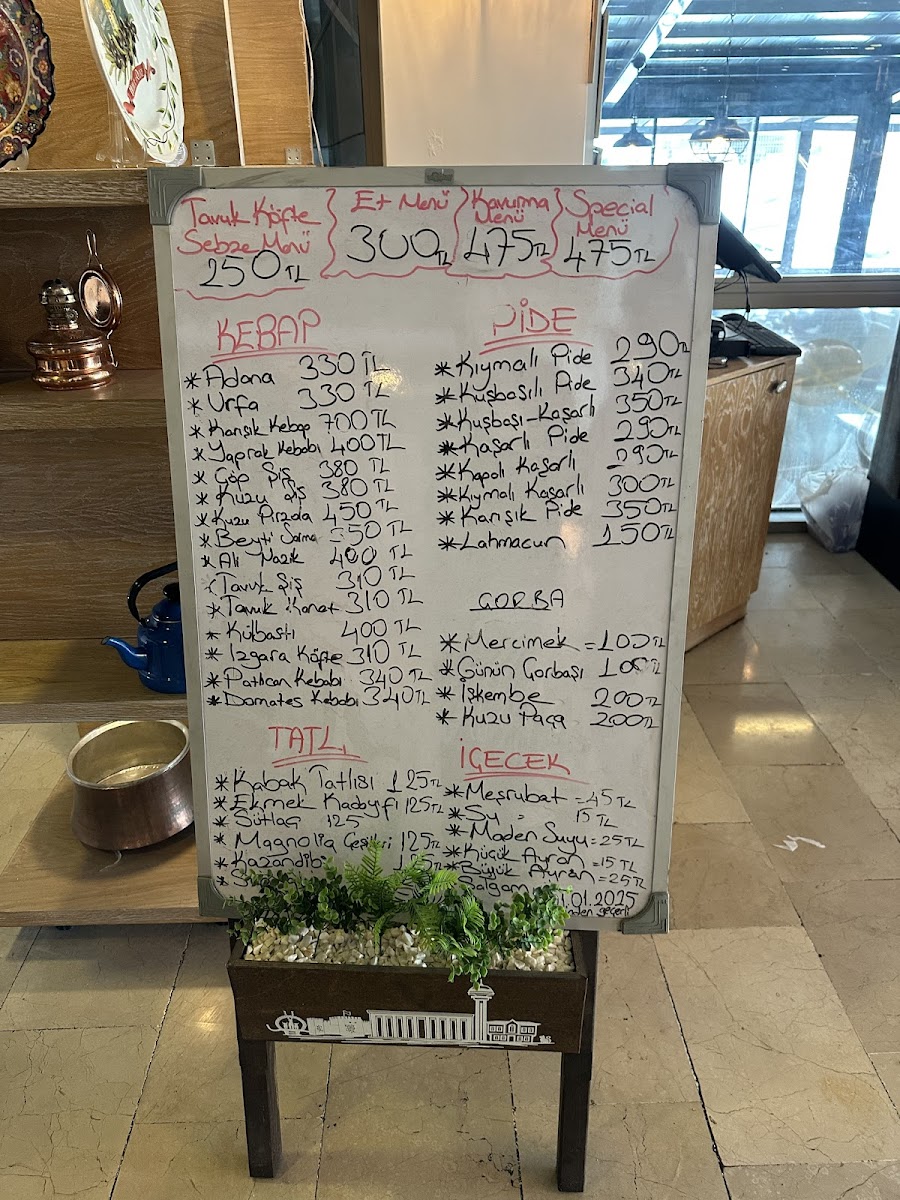 Tavuk Köfte
Sebze Menü
250 TL
Et Menü
300 TL
Kavurma
Menü
475 TL
Special
Menü
475 TL
KEBAP
* Adana 330 TL
* Urfa 330 TL
* Karışık Kebap 700 TL
* Yaprak Kebabı 400 TL
* Çöp Şiş 380 TL
* Kuzu Şiş 380 TL
* Kuzu Pirzola 450 TL
* Beyti Sarma 350 TL
* Ali Nazik 400 TL
* Tavuk Şiş 310 TL
* Tavuk Kanat 310 TL
* Külbastı 400 TL
* Izgara Köfte 310 TL
* Patlıcan Kebabı 340 TL
* Domates Kebabı 340 TL
PİDE
* Kıymalı Pide 290 TL
* Kuşbaşılı Pide 340 TL
* Kuşbaşı-Kaşarlı 350 TL
* Kaşarlı Pide 290 TL
* Kapalı Kaşarlı 290 TL
* Kıymalı Kaşarlı 300 TL
* Karışık Pide 350 TL
* Lahmacun 150 TL
ÇORBA
* Mercimek = 100 TL
* Günün Çorbası 100 TL
* İşkembe 200 TL
* Kuzu Paça 200 TL
TATLI
* Kabak Tatlısı 125 TL
* Ekmek Kadayıfı 125 TL
* Sütlaç 125
* Magnolia Çeşitleri 125 TL
* Kazandibi
İÇECEK
* Meşrubat = 45 TL
* Su = 15 TL
* Maden Suyu = 25 TL
* Küçük Ayran = 15 TL
* Büyük Ayran = 25 TL
* Şalgam
01.01.2025
geçerli